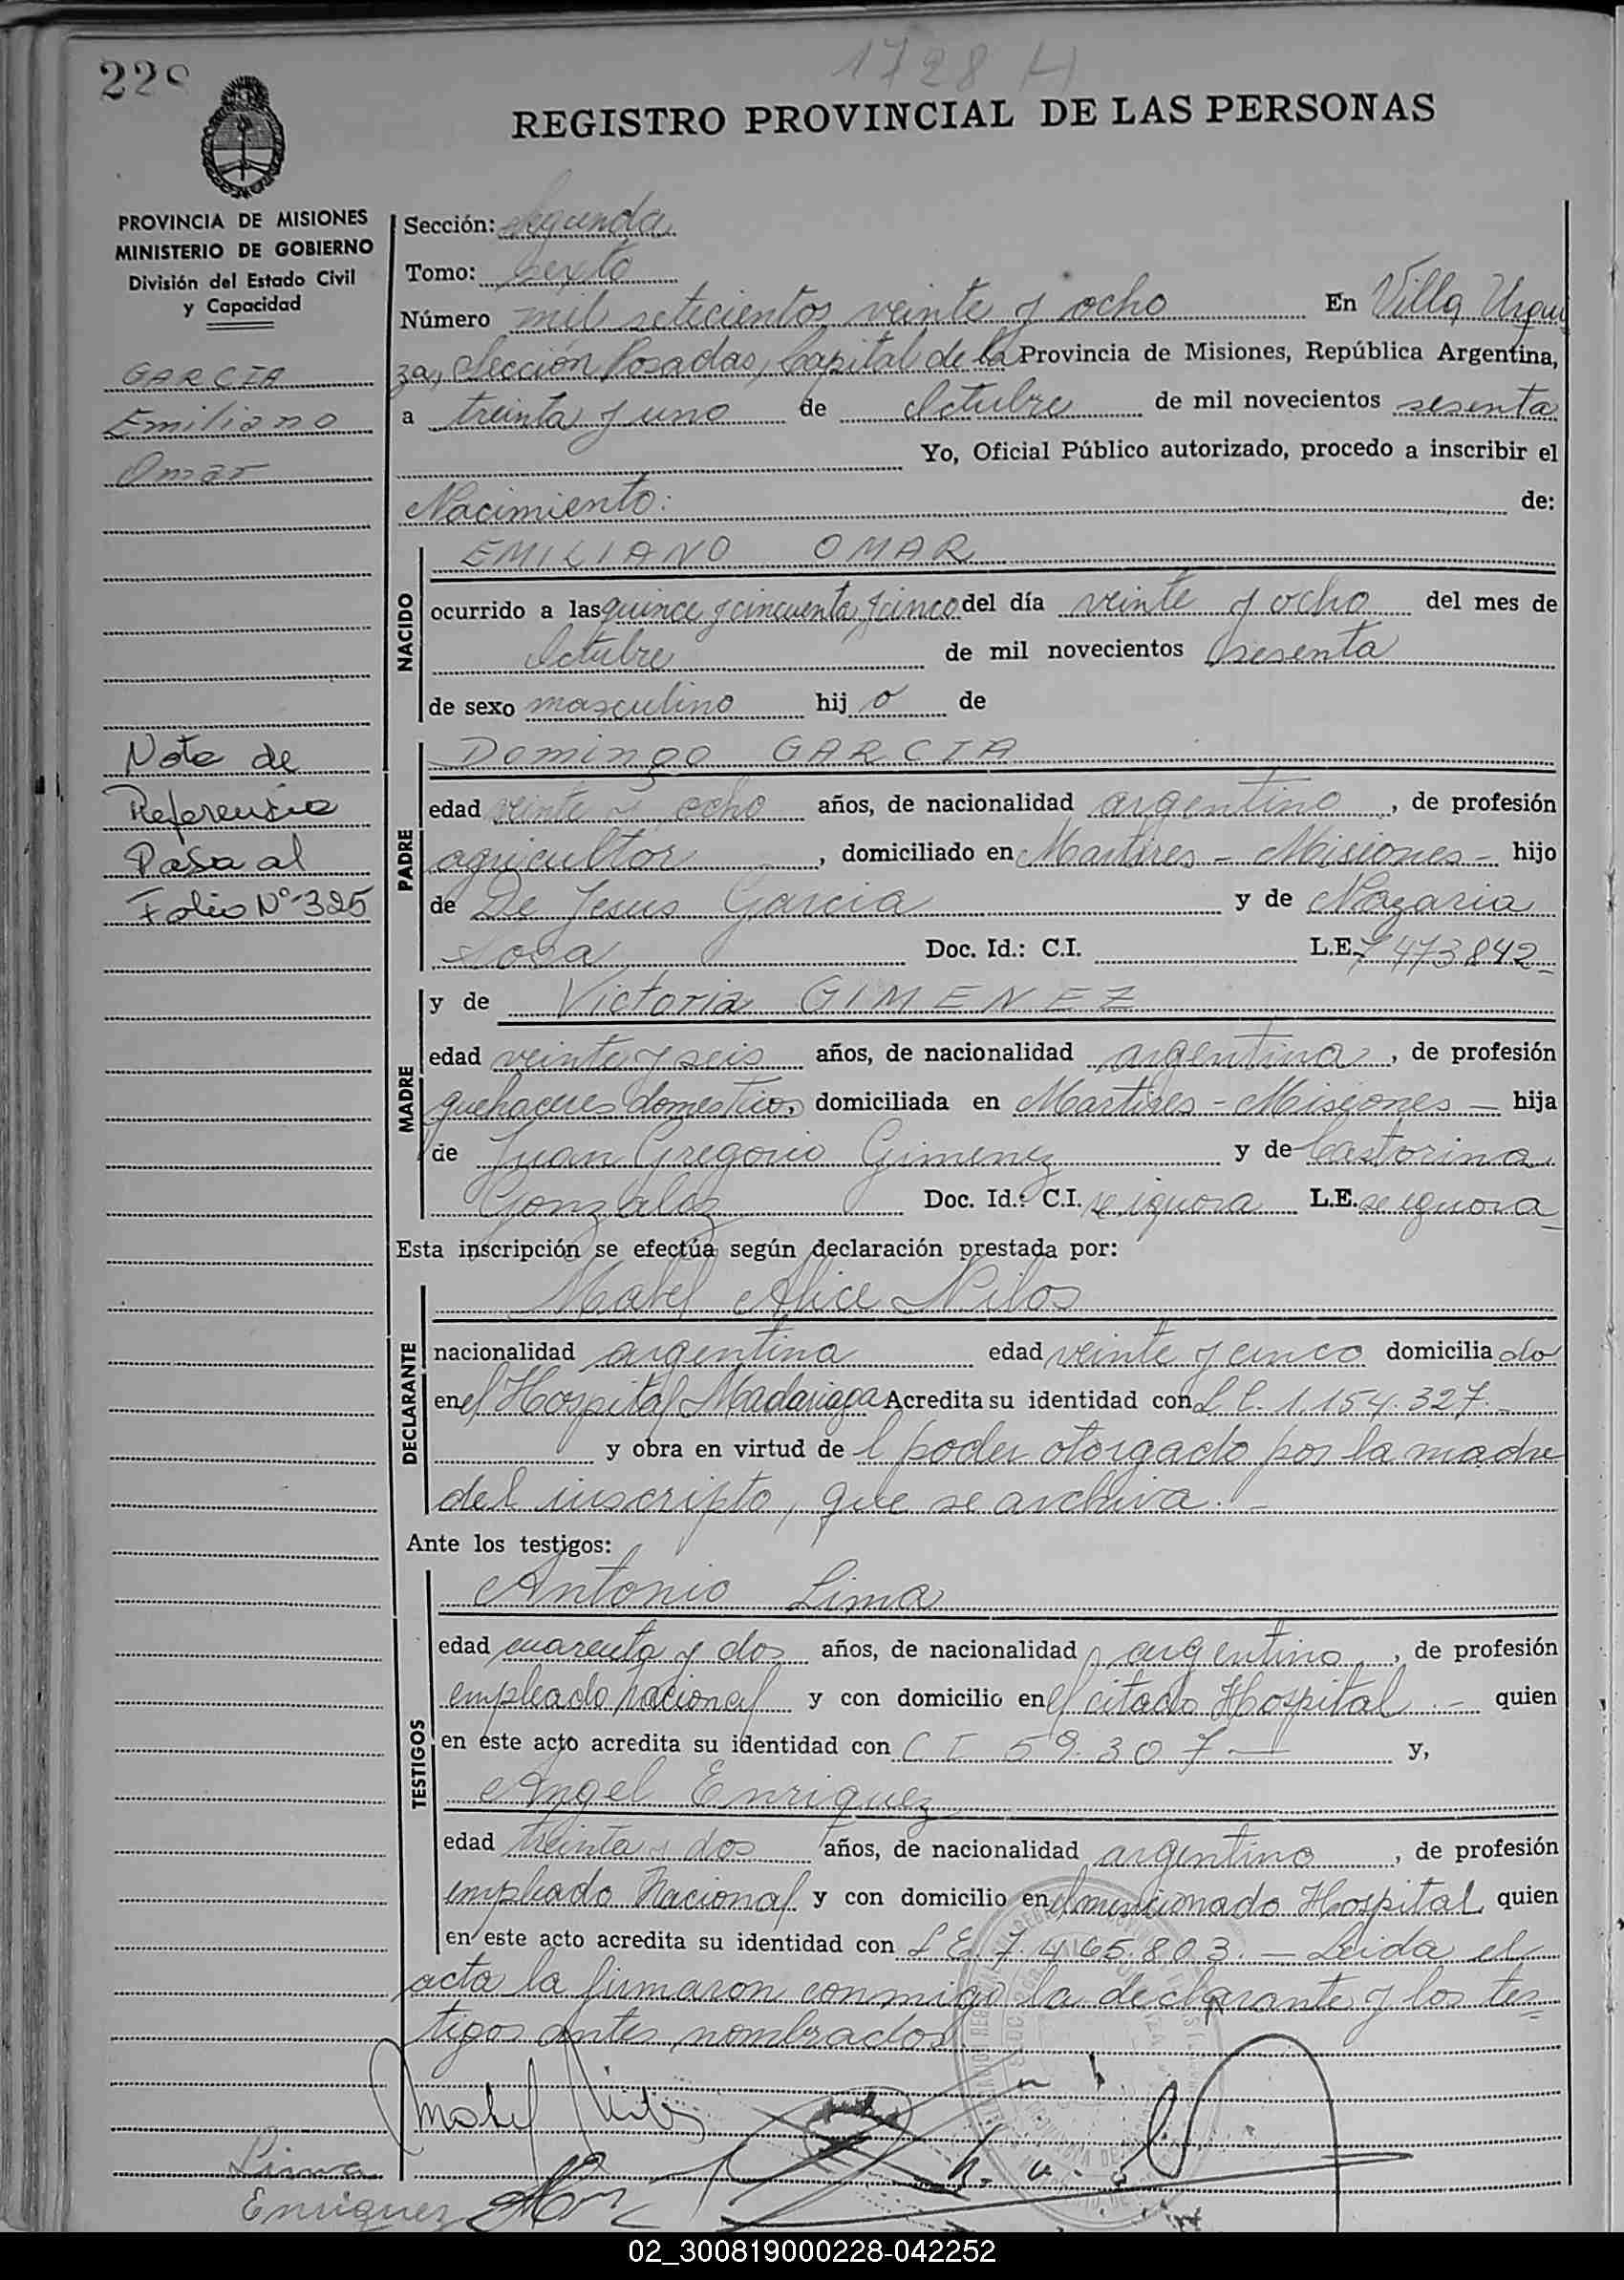 1728 H
REGISTRO PROVINCIAL DE LAS PERSONAS
PROVINCIA DE MISIONES
MINISTERIO DE GOBIERNO
División del Estado Civil
y Capacidad
GARCIA
Emiliano
Omar
Nota de
Referencia
Pasa al
Folio Nº 325
Sección: Segunda
Tomo: Sexto
Número mil setecientos veinte y ocho En Villa Urqui
za, Sección Posadas, Capital de la Provincia de Misiones, República Argentina,
a treinta y uno de Octubre de mil novecientos sesenta
Yo, Oficial Público autorizado, procedo a inscribir el
Nacimiento: de:
NACIDO
EMILIANO OMAR
ocurrido a las quince y cincuenta y cinco del día veinte y ocho del mes de
Octubre de mil novecientos sesenta
de sexo masculino hij o de
PADRE
Domingo GARCIA
edad veinte y ocho años, de nacionalidad argentino, de profesión
agricultor, domiciliado en Martires - Misiones - hijo
de De Jesus Garcia y de Nazaria
Sosa Doc. Id.: C.I. L.E. 7473842
MADRE
y de Victoria GIMENEZ
edad veinte y seis años, de nacionalidad argentina, de profesión
quehaceres domesticos, domiciliada en Martires - Misiones - hija
de Juan Gregorio Gimenez y de Castorina
Gonzalez Doc. Id.: C.I. se ignora L.E. se ignora
Esta inscripción se efectúa según declaración prestada por:
DECLARANTE
Mabel Alice Nilos
nacionalidad argentina edad veinte y cinco domicilia do
en el Hospital Madariaga Acredita su identidad con L C. 1.154.327.-
y obra en virtud de l poder otorgado por la madre
del inscripto, que se archiva.-
Ante los testigos:
TESTIGOS
Antonio Lima
edad cuarenta y dos años, de nacionalidad argentino, de profesión
empleado nacional y con domicilio en el citado Hospital.- quien
en este acto acredita su identidad con C I 59.307- y,
Angel Enriquez
edad treinta y dos años, de nacionalidad argentino, de profesión
empleado Nacional y con domicilio en el mencionado Hospital quien
en este acto acredita su identidad con L E. 7.465.803.- Leida el
acta la firmaron conmigo la declarante y los tes
tigos antes nombrados.
Mabel Nilos
Lima
Enriquez
02_300819000228-042252